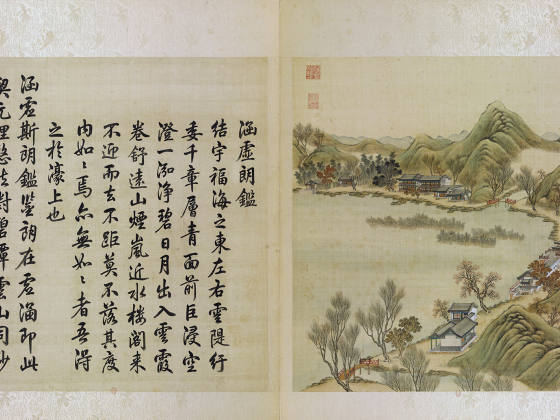 涵虛朗鑑
結宇福海之東左右雲隄紆
委千章層青面前巨浸空
澄一泓净碧日月出入雲霞
卷舒遠山煙嵐近水樓閣來
不迎而去不距莫不落其度
内如〻焉亦無如〻者吾得
之於濠上也
涵虛斯朗鑑鑒朗在虛涵即此
契元理悠然對碧潭雲山同妙